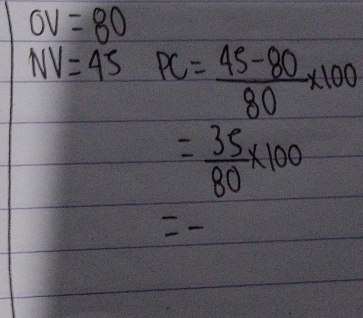 OV = 80
NV = 45 PC = 45-80/80 x100
= 35/80 x100
= -